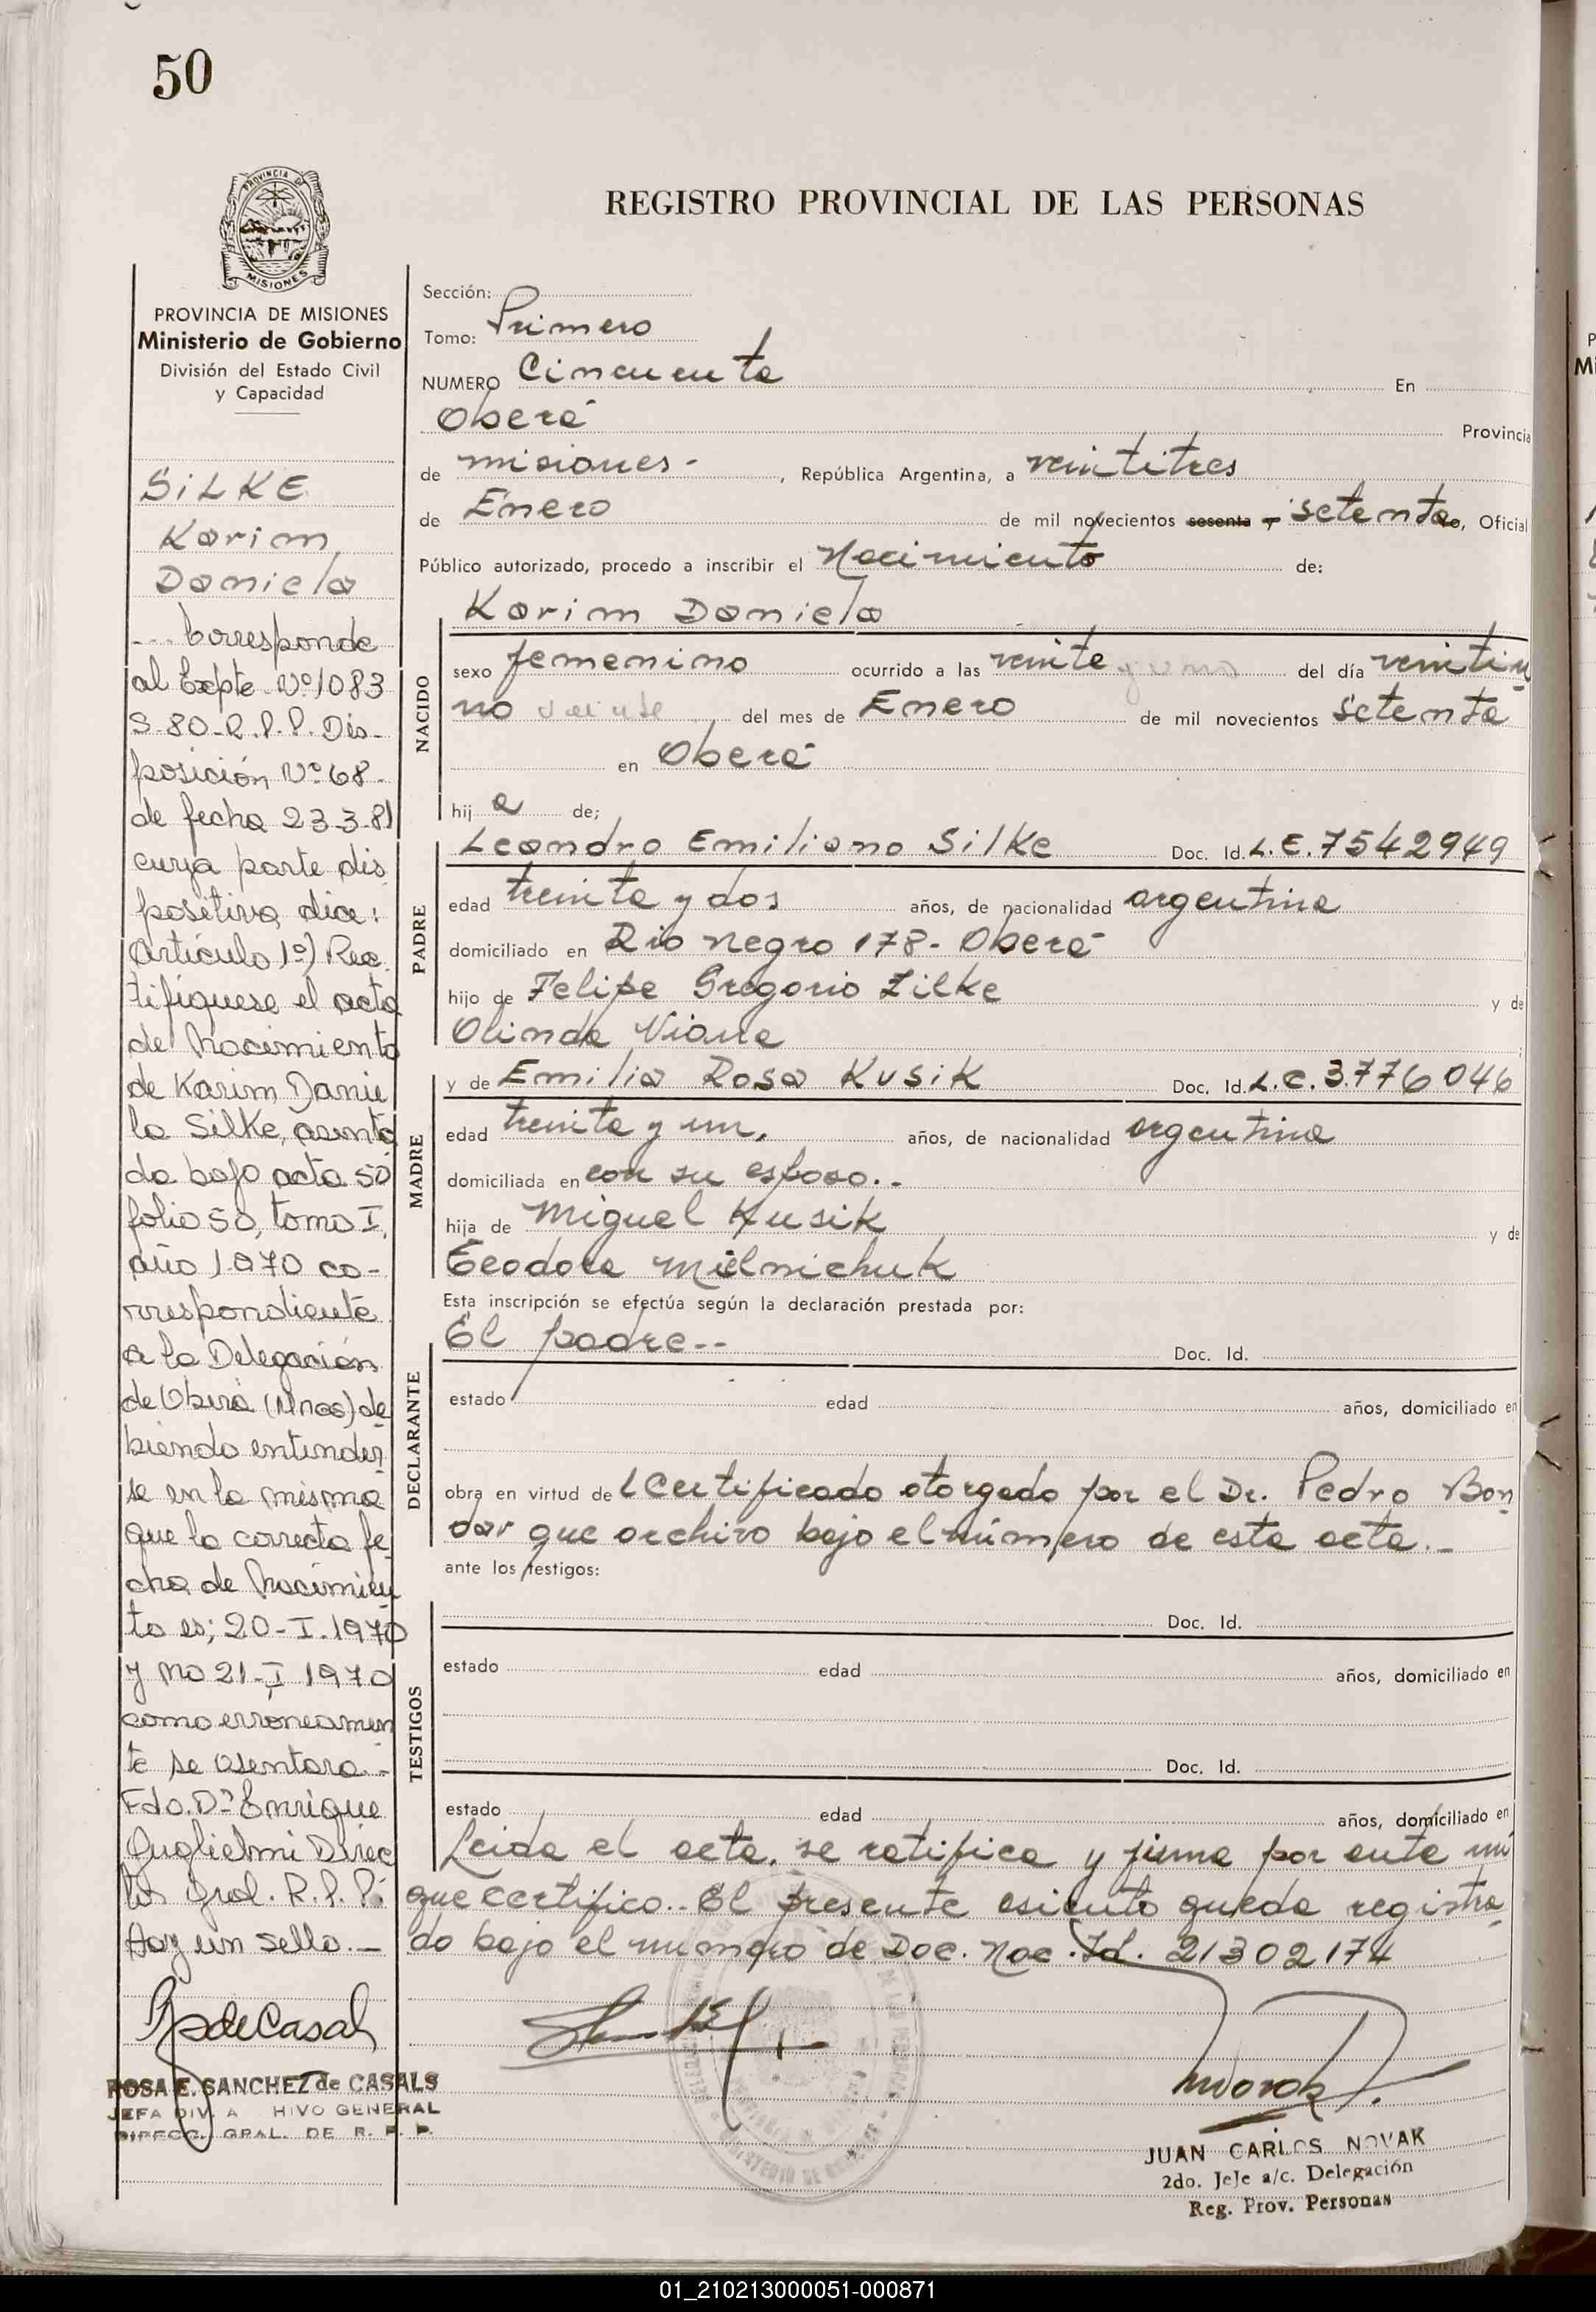 50
PROVINCIA DE MISIONES
REGISTRO PROVINCIAL DE LAS PERSONAS
PROVINCIA DE MISIONES
Ministerio de Gobierno
División del Estado Civil
y Capacidad
SILKE
Karim
Daniela
Corresponde
al Expte Nº 1083
S-80-R.P.P. Dis-
posición Nº 68-
de fecha 23-3-81
cuya parte dis
positiva, dice:
Artículo 1º) Rec
tifíquese el acta
de Nacimiento
de Karim Danie
la Silke, asenta
da bajo acta 50
folio 50, tomo I,
año 1970 co-
rrespondiente
a la Delegación
de Oberá (Mnes) de
biendo entender
se en la misma
que la correcta fe
cha de Nacimien
to es; 20-I-1970
y no 21-I 1970
como erroneamen
te se asentara.-
Fdo. Dn Enrique
Guglielmi Direc
tor Gral. R.P.P.
Hay un sello.-
ROSA E. SANCHEZ de CASALS
JEFA DIV. A HIVO GENERAL
DIRECC. GRAL. DE R. P. P.
Sección:
Tomo: Primero
NUMERO Cincuenta En
Oberá Provincia
de misiones- , República Argentina, a veintitres
de Enero de mil novecientos sesenta y setenta, Oficial
Público autorizado, procedo a inscribir el Nacimiento de:
Karim Daniela
NACIDO
sexo femenino ocurrido a las veinte y una del día veintiu
no veinte del mes de Enero de mil novecientos setenta
en Oberá
hij a de;
PADRE
Leandro Emiliano Silke Doc. Id. L.E. 7542949
edad treinta y dos años, de nacionalidad argentina
domiciliado en Rio Negro 178- Oberá
hijo de Felipe Gregorio Zilke y de
Olinda Viana
MADRE
y de Emilia Rosa Kusik Doc. Id. L.C. 3.776046
edad treinta y un, años, de nacionalidad argentina
domiciliada en con su esposo.-
hija de Miguel Kusik y de
Teodora Mielnichuk
Esta inscripción se efectúa según la declaración prestada por:
DECLARANTE
El padre-- Doc. Id.
estado edad años, domiciliado en
obra en virtud de l Certificado otorgado por el Dr. Pedro Bon
dar que archivo bajo el número de esta acta.-
ante los testigos:
TESTIGOS
Doc. Id.
estado edad años, domiciliado en
Doc. Id.
estado edad años, domiciliado en
Leida el acta, se ratifica y firma por ante mi
que certifico.. El presente asiento queda registra
do bajo el numero de Doc. Nac. Id. 21302174
JUAN CARLOS NOVAK
2do. Jefe a/c. Delegación
Reg. Prov. Personas
01_210213000051-000871